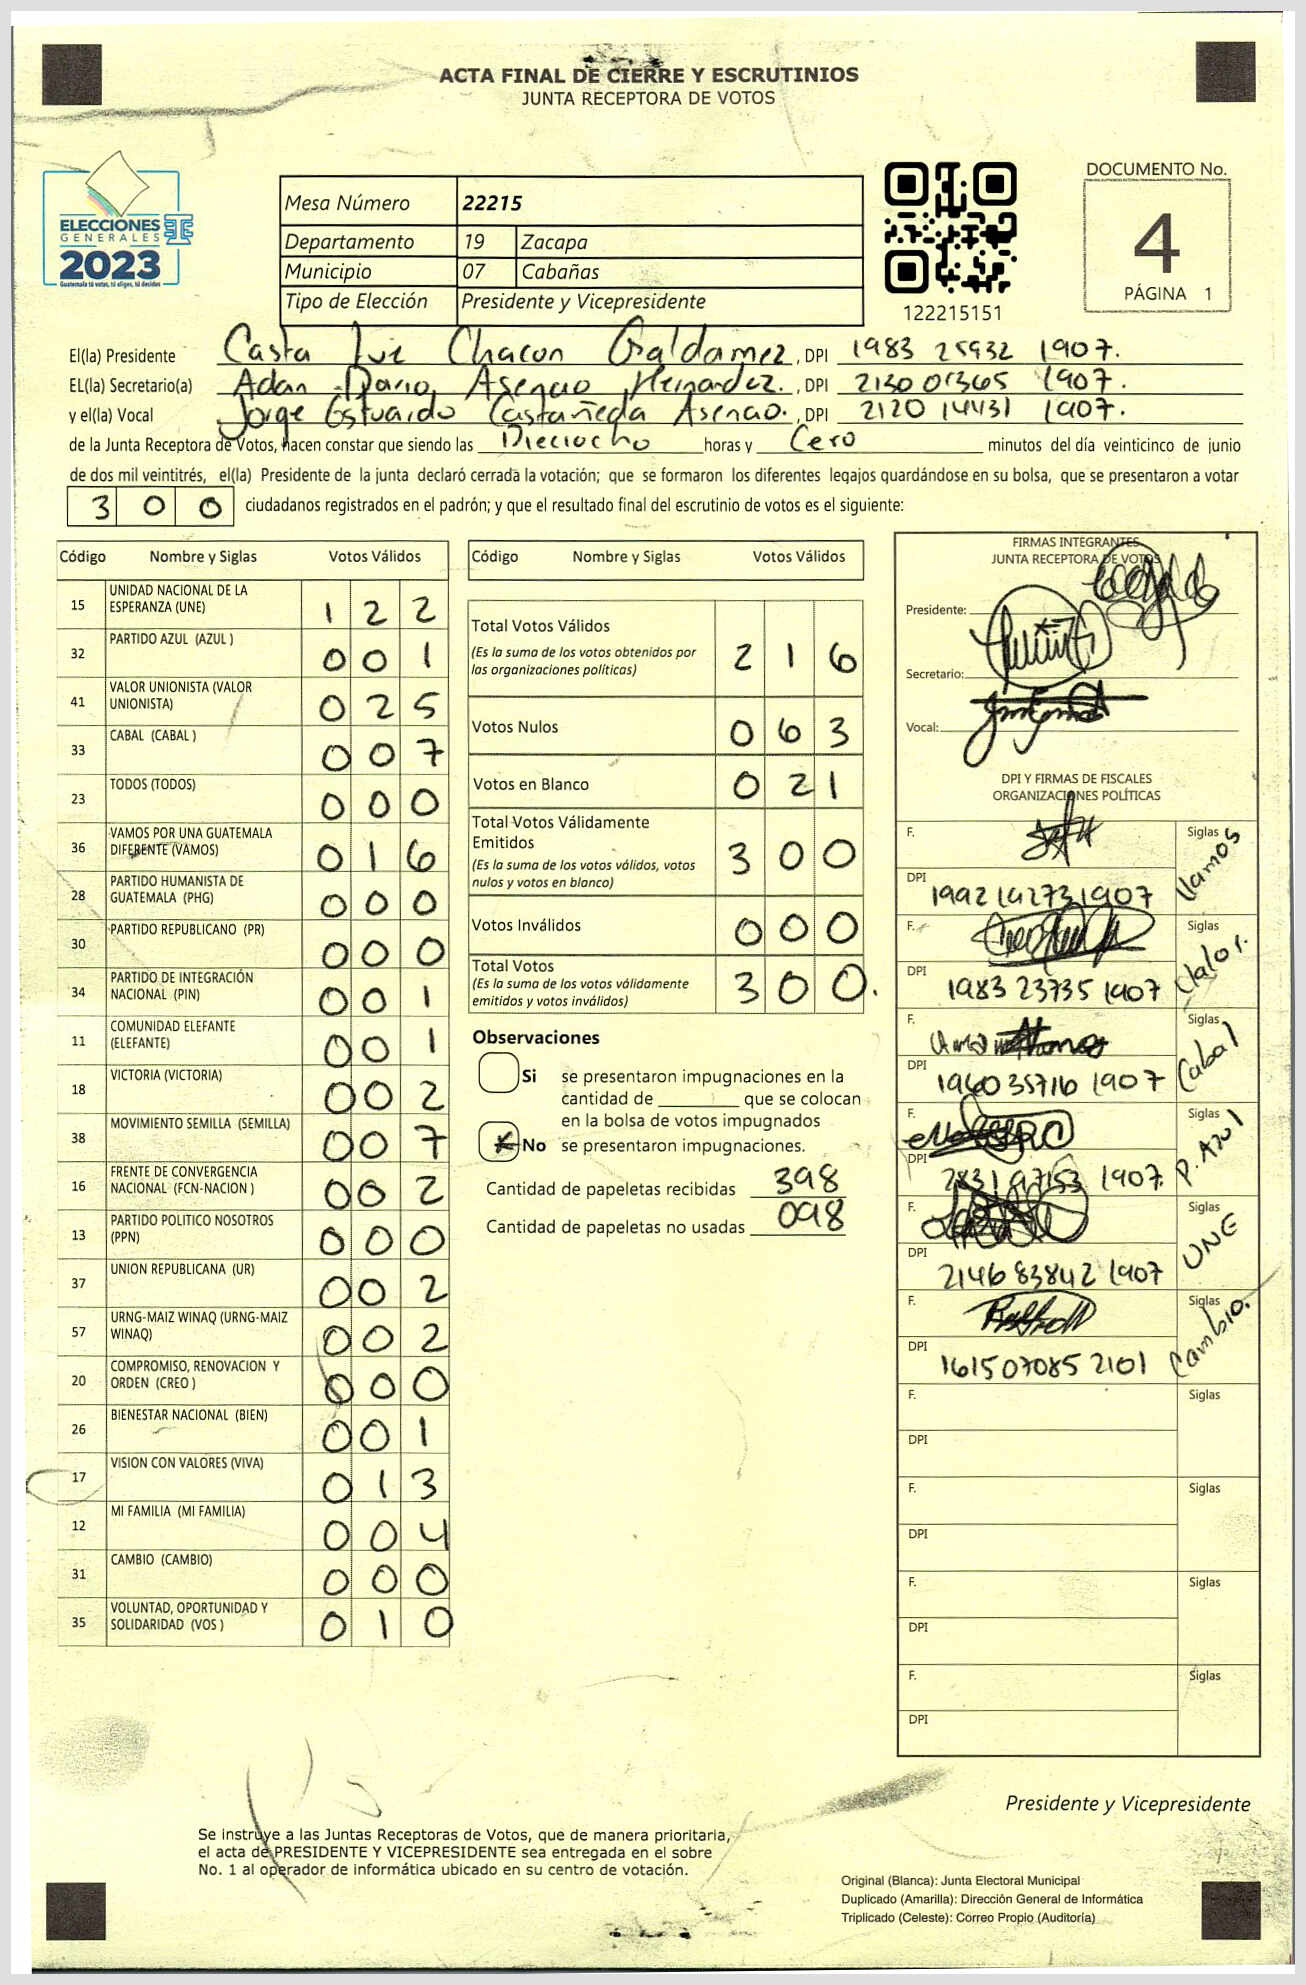 ACTA FINAL DE CIERRE Y ESCRUTINIOS
JUNTA RECEPTORA DE VOTOS
ELECCIONES
GENERALES
2023
Guatemala tú votas, tú eliges, tú decides
Mesa Número 22215
Departamento 19 Zacapa
Municipio 07 Cabañas
Tipo de Elección Presidente y Vicepresidente
122215151
DOCUMENTO No.
4
PÁGINA 1
El(la) Presidente Casta Chacon Galdamez, DPI 1983 25932 1907.
EL(la) Secretario(a) Adan Dario Asencio Hernandez., DPI 2130 01365 1907.
y el(la) Vocal Jorge Estuardo Castañeda Asencio., DPI 2120 14431 1907.
de la Junta Receptora de Votos, hacen constar que siendo las Dieciocho horas y Cero minutos del día veinticinco de junio
de dos mil veintitrés, el(la) Presidente de la junta declaró cerrada la votación; que se formaron los diferentes legajos quardándose en su bolsa, que se presentaron a votar
300 ciudadanos registrados en el padrón; y que el resultado final del escrutinio de votos es el siguiente:
Código Nombre y Siglas Votos Válidos
15 UNIDAD NACIONAL DE LA ESPERANZA (UNE) 122
32 PARTIDO AZUL (AZUL ) 001
41 VALOR UNIONISTA (VALOR UNIONISTA) 025
33 CABAL (CABAL ) 007
23 TODOS (TODOS) 000
36 VAMOS POR UNA GUATEMALA DIFERENTE (VAMOS) 016
28 PARTIDO HUMANISTA DE GUATEMALA (PHG) 000
30 PARTIDO REPUBLICANO (PR) 000
34 PARTIDO DE INTEGRACIÓN NACIONAL (PIN) 001
11 COMUNIDAD ELEFANTE (ELEFANTE) 001
18 VICTORIA (VICTORIA) 002
38 MOVIMIENTO SEMILLA (SEMILLA) 007
16 FRENTE DE CONVERGENCIA NACIONAL (FCN-NACION ) 002
13 PARTIDO POLITICO NOSOTROS (PPN) 000
37 UNION REPUBLICANA (UR) 002
57 URNG-MAIZ WINAQ (URNG-MAIZ WINAQ) 002
20 COMPROMISO, RENOVACION Y ORDEN (CREO ) 000
26 BIENESTAR NACIONAL (BIEN) 001
17 VISION CON VALORES (VIVA) 013
12 MI FAMILIA (MI FAMILIA) 004
31 CAMBIO (CAMBIO) 000
35 VOLUNTAD, OPORTUNIDAD Y SOLIDARIDAD (VOS ) 010
Código Nombre y Siglas Votos Válidos
Total Votos Válidos 216
(Es la suma de los votos obtenidos por
las organizaciones políticas)
Votos Nulos 063
Votos en Blanco 021
Total Votos Válidamente
Emitidos 300
(Es la suma de los votos válidos, votos
nulos y votos en blanco)
Votos Inválidos 000
Total Votos 300.
(Es la suma de los votos válidamente
emitidos y votos inválidos)
Observaciones
Si se presentaron impugnaciones en la
cantidad de ________ que se colocan
en la bolsa de votos impugnados
X No se presentaron impugnaciones.
Cantidad de papeletas recibidas 398
Cantidad de papeletas no usadas 098
FIRMAS INTEGRANTES
JUNTA RECEPTORA DE VOTOS
Presidente:
Secretario:
Vocal:
DPI Y FIRMAS DE FISCALES
ORGANIZACIONES POLÍTICAS
F. Siglas Vamos
DPI 1992 14273 1907
F. Siglas Valor.
DPI 1983 23735 1907
F. Siglas Cabal
DPI 1940 35716 1907
F. Siglas P. Azul
DPI 2831 97153 1907
F. Siglas UNE
DPI 2146 83842 1907
F. Siglas Cambio.
DPI 1615 07085 2101
F. Siglas
DPI
F. Siglas
DPI
F. Siglas
DPI
F. Siglas
DPI
Presidente y Vicepresidente
Se instruye a las Juntas Receptoras de Votos, que de manera prioritaria,
el acta de PRESIDENTE Y VICEPRESIDENTE sea entregada en el sobre
No. 1 al operador de informática ubicado en su centro de votación.
Original (Blanca): Junta Electoral Municipal
Duplicado (Amarilla): Dirección General de Informática
Triplicado (Celeste): Correo Propio (Auditoría)